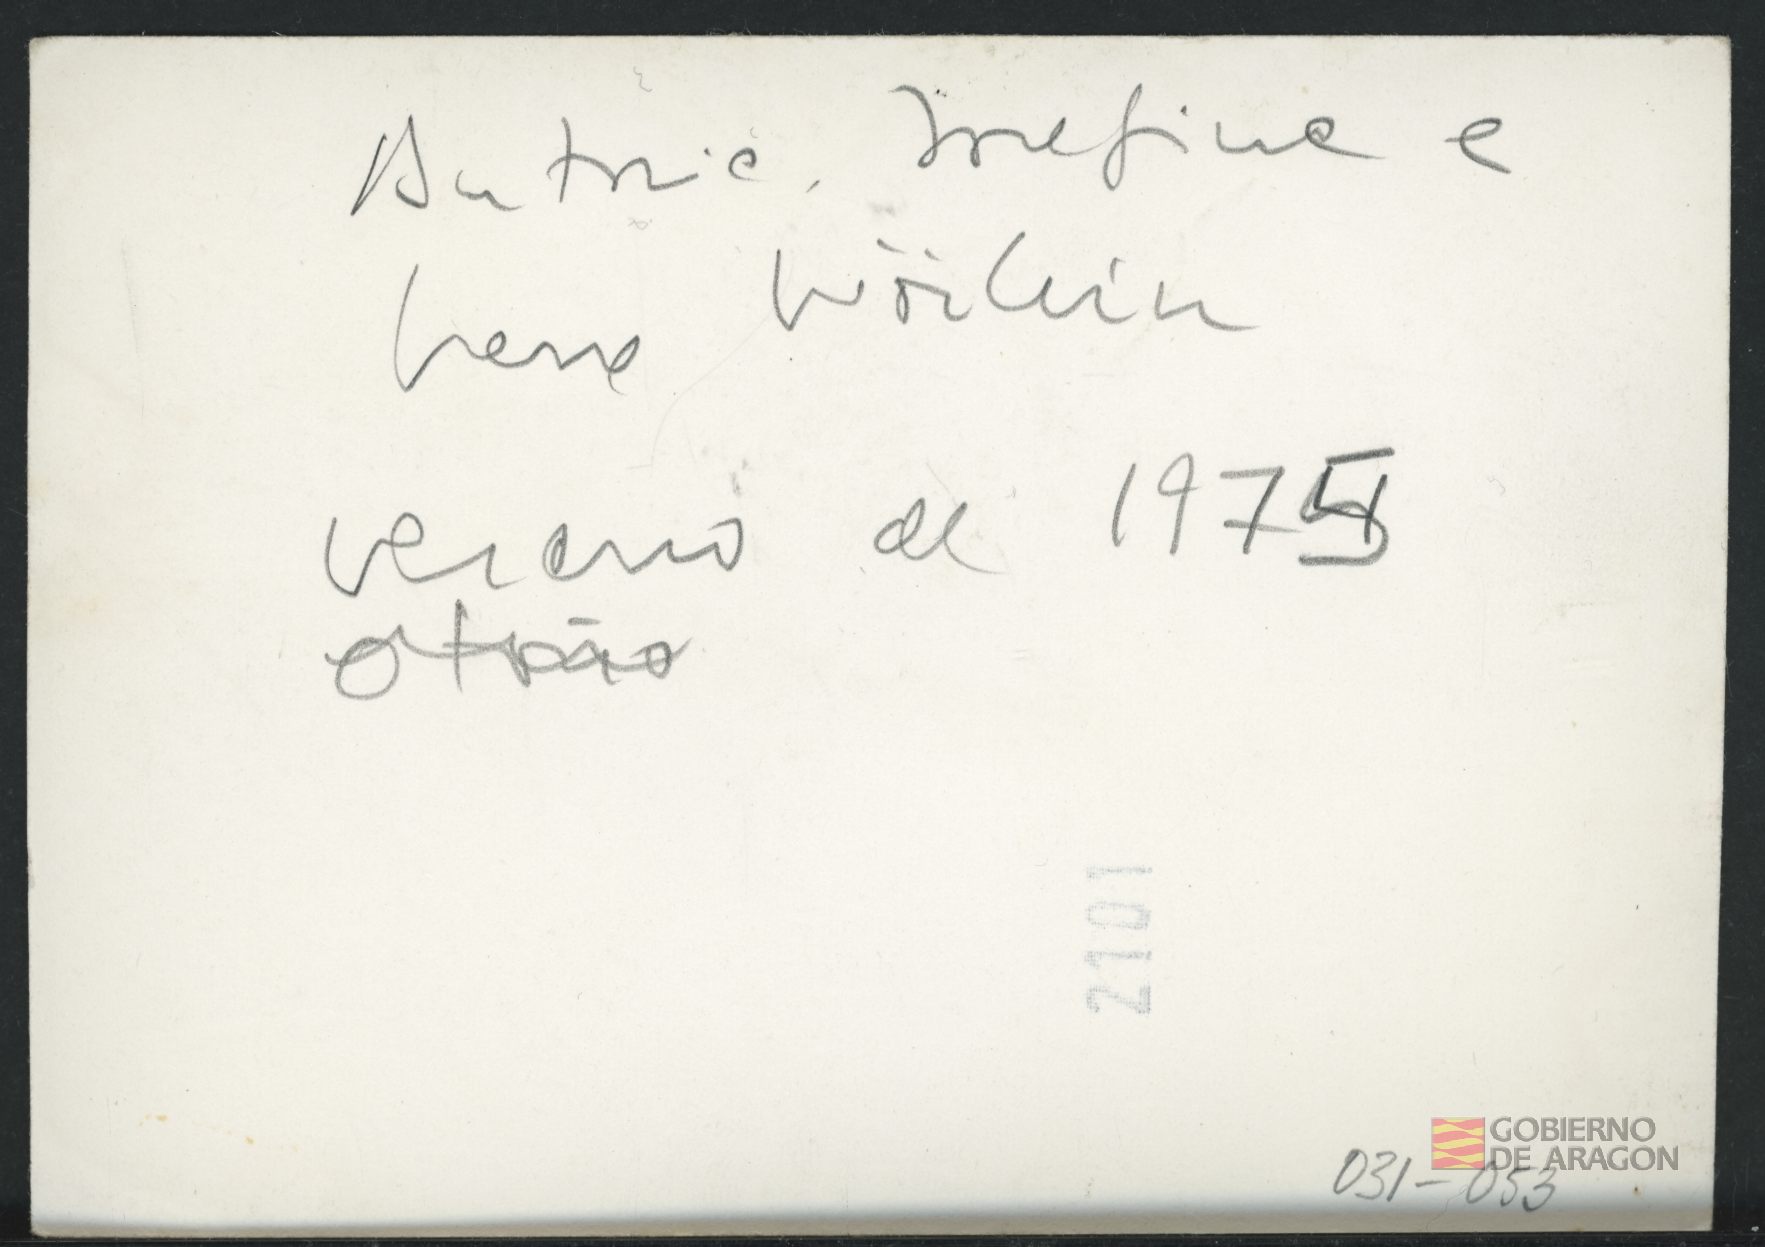 Antonio, Josefina e
Irene Wörlein
verano de 1975
otoño
2101
031-053
GOBIERNO
DE ARAGON